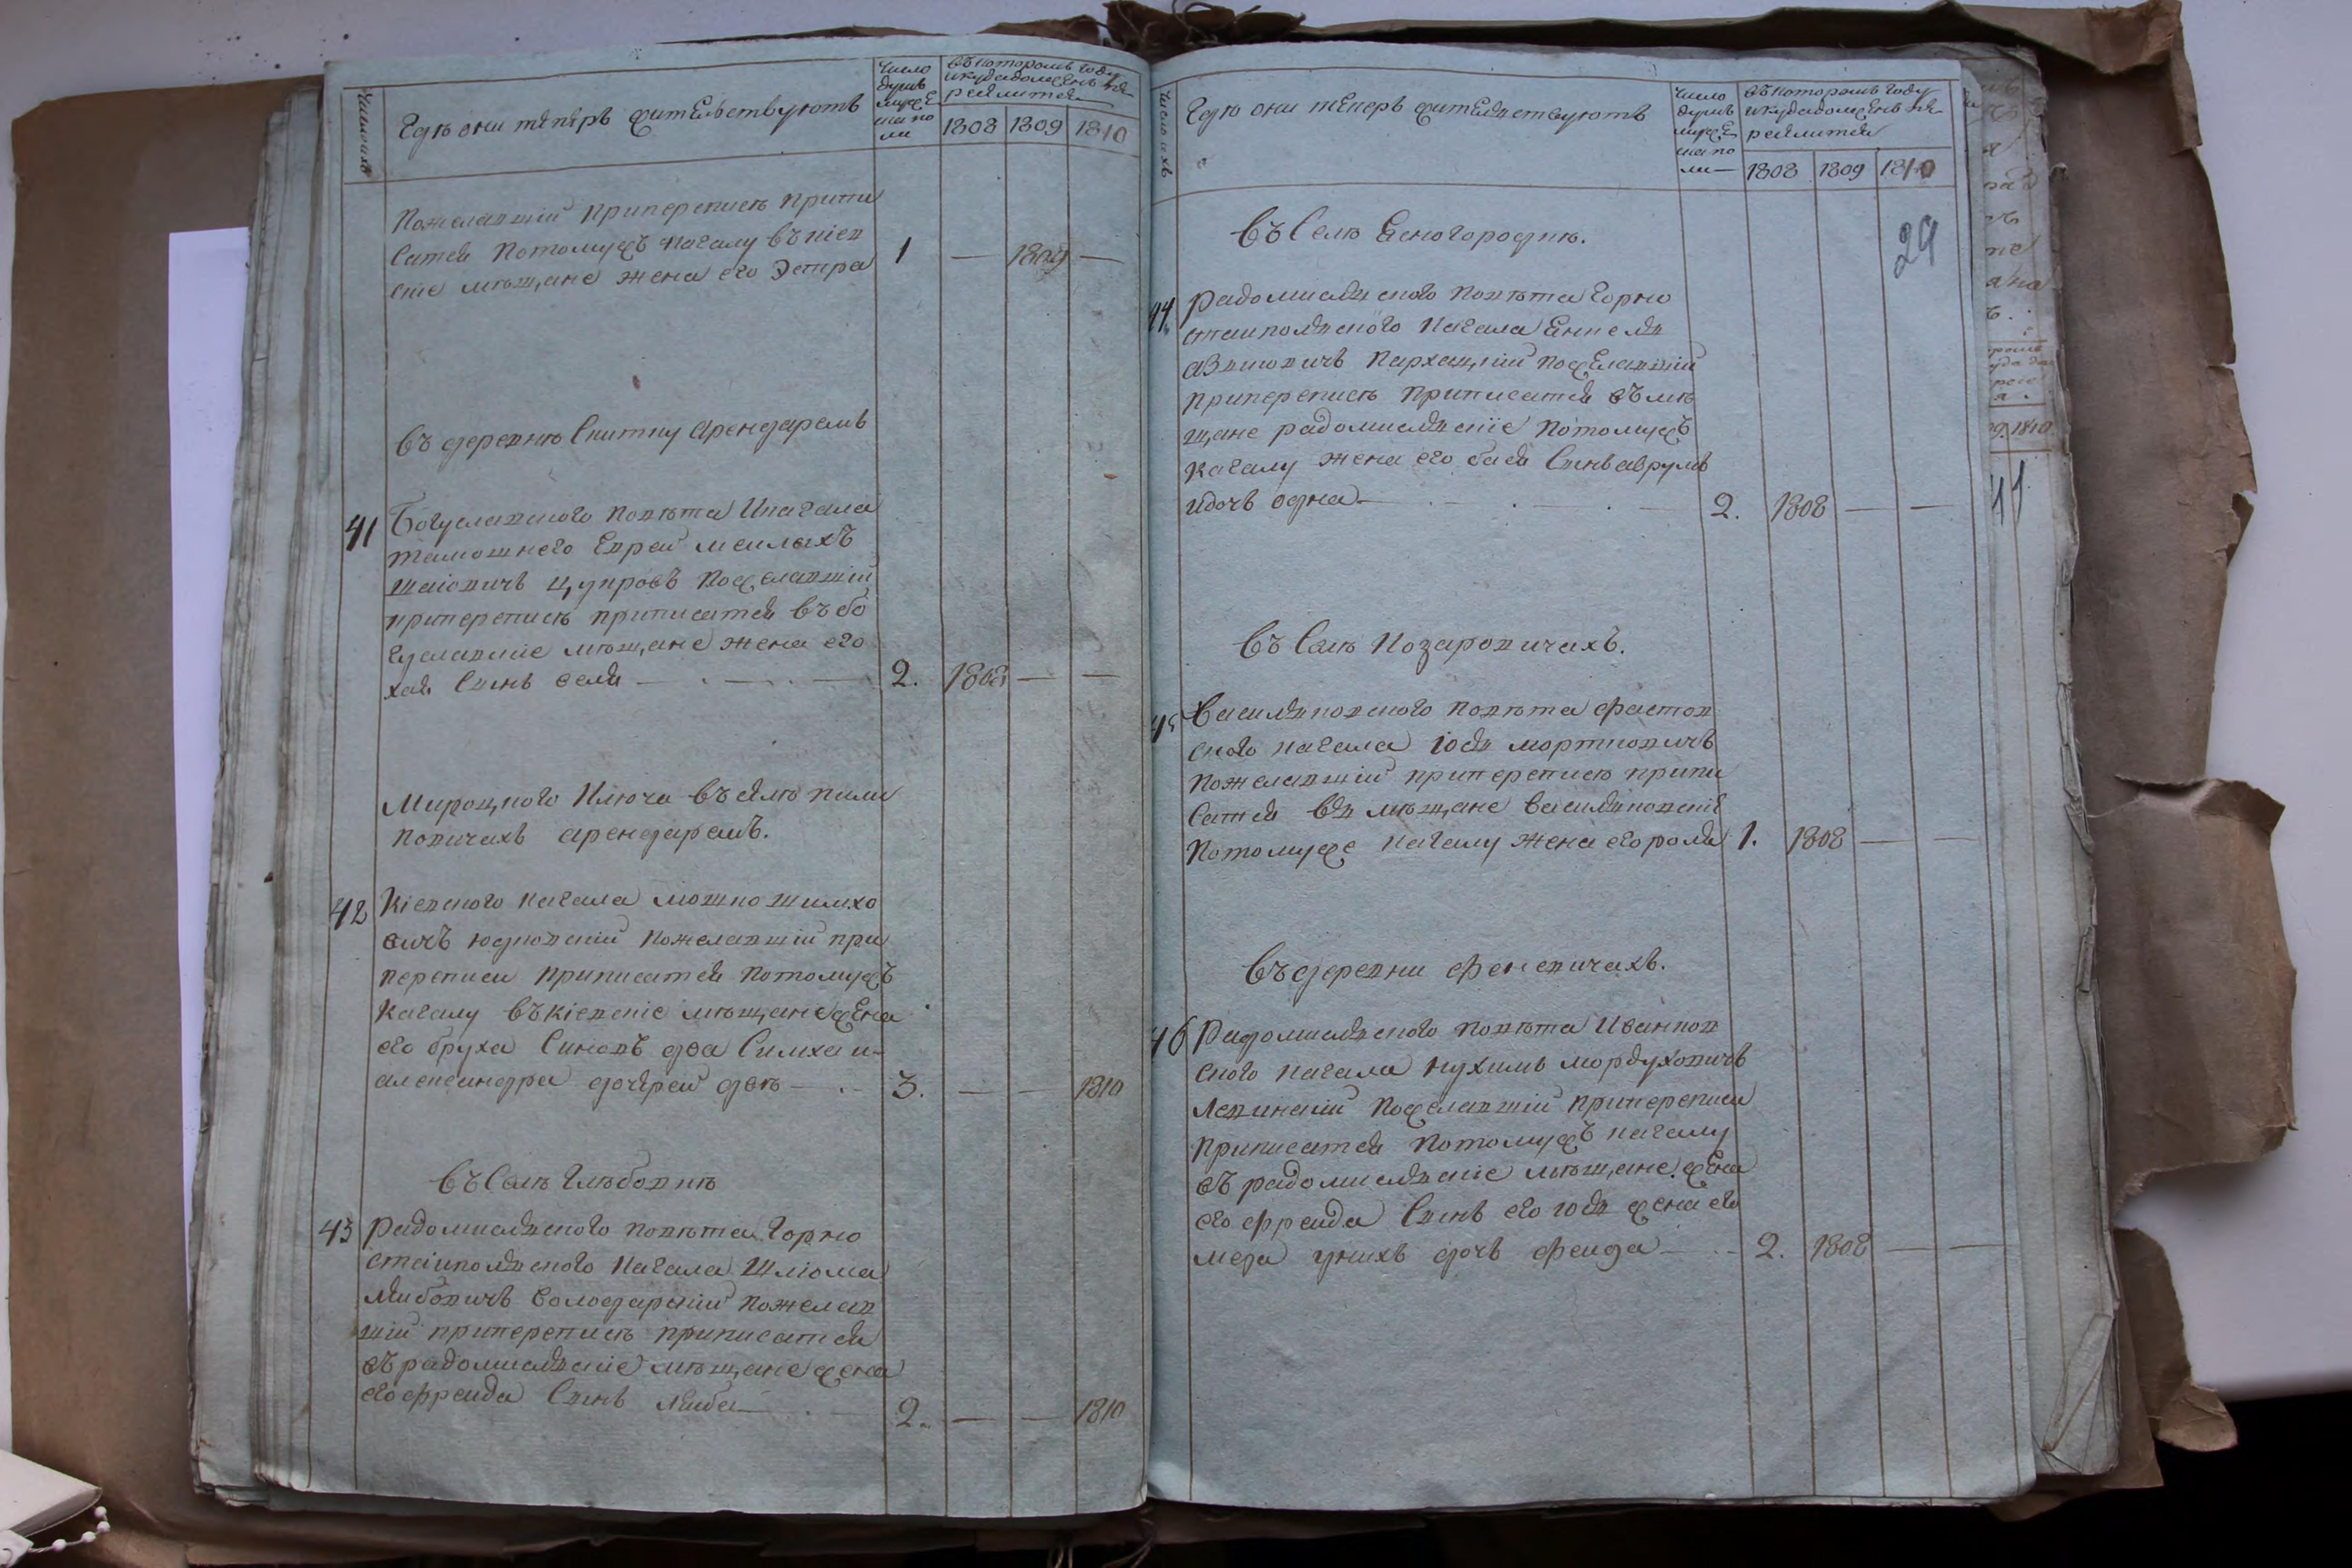 Число ихъ
Где они теперъ жителствуютъ
число
душъ
мужес
ка по
ла
въкоторомъ году
икуда должны пе
реилится
1808 1809 1810
Пожелавшій приперепись припи
сатся потомужъ кагалу въкіев
скіе мѣщане жена его Эстра 1 — 1809 —
въ деревнѣ Спитку арендаремъ
41 Богуславского повѣта Икагала
тамошнего Еврей
шаіовичъ цупровъ пожелавшій
приперепись приписатся въ бо
гуславскіе мѣщане жена его
хая Синъ селя — . — . — 2. 1808 — —
Мироцкого Ключа въ селѣ пили
повичахъ арендаремъ.
42 Кіевского кагала мошко шимхо
вичъ юдковскій пожелавшій при
переписи приписатся потомужъ
кагалу въ кіевскіе мѣщане жена
его бруха Синовъ два Симха и
александра дочерей двѣ — . — 3. — — 1810
въ Селѣ Глѣбовкѣ
43 Радомислского повѣта Горно
стаіполского кагала Шліома
Лейбовичъ володарскій пожелав
шій приперепись приписатся
въ радомислскіе мѣщане жена
его фрейда Синъ Лейба — . — 2. — — 1810
число ихъ
Где они теперъ жителствуютъ
число
душъ
мужес
ка по
ла —
въкоторомъ году
икуда должны пе
реилится
1808 1809 1810
29
въ Селѣ Ясногородкѣ.
44. Радомислского повѣта Горно
стаиполского Кагала Янкель
пожелавшій
приперепись приписатся въ мѣ
щане радомислскіе потомужъ
кагалу жена его бася Синъ аврумъ
идочъ одна — . — . — 2. 1808 — —
въ Селѣ Козаровичахъ.
45 Василковского повѣта фастов
ского кагала Іось мортковичъ
пожелавшій приперепись припи
сатся въ мѣщане василковскіе
потомуже кагалу жена его роля 1. 1808 — —
въ деревни феневичахъ.
46 Радомислского повѣта Иванков
ского кагала Нухимъ мордуховичъ
Левинскій пожелавшій приперепи́си
приписатся потомужъ кагалу
въ радомислскіе мѣщане. жена
его фрейда Синъ его іось жена его
меда унихъ дочъ фейга — . — 2. 1808 — —
1810